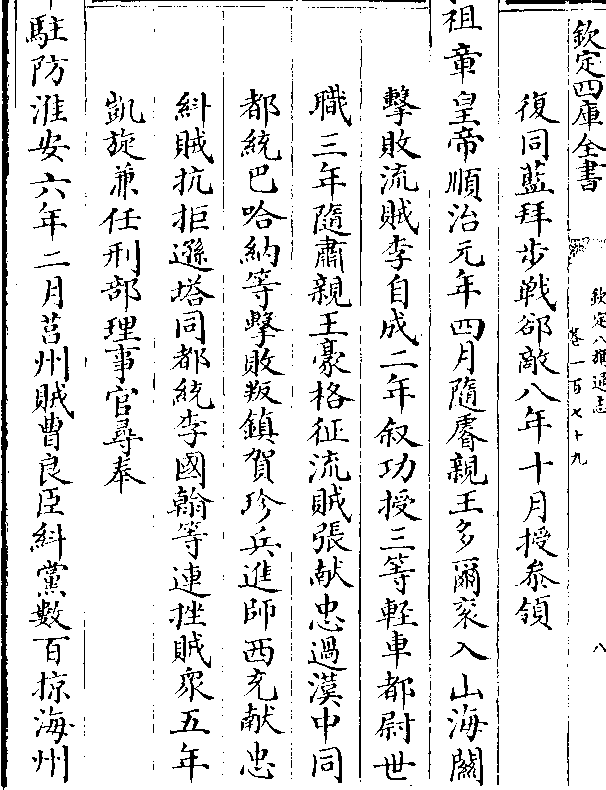 欽定四庫全書
欽定八旗通志
卷一百七十九
八
復同藍拜步戰郤敵八年十月授叅領
祖章皇帝順治元年四月隨睿親王多爾衮入山海關
擊敗流賊李自成二年叙功授三等輕車都尉世
職三年隨肅親王豪格征流賊張献忠過漢中同
都統巴哈納等擊敗叛鎮賀珍兵進師西充献忠
糾賊抗拒遜塔同都統李國翰等連挫賊衆五年
凱旋兼任刑部理事官尋奉
駐防淮安六年二月莒州賊曹良臣糾黨數百掠海州